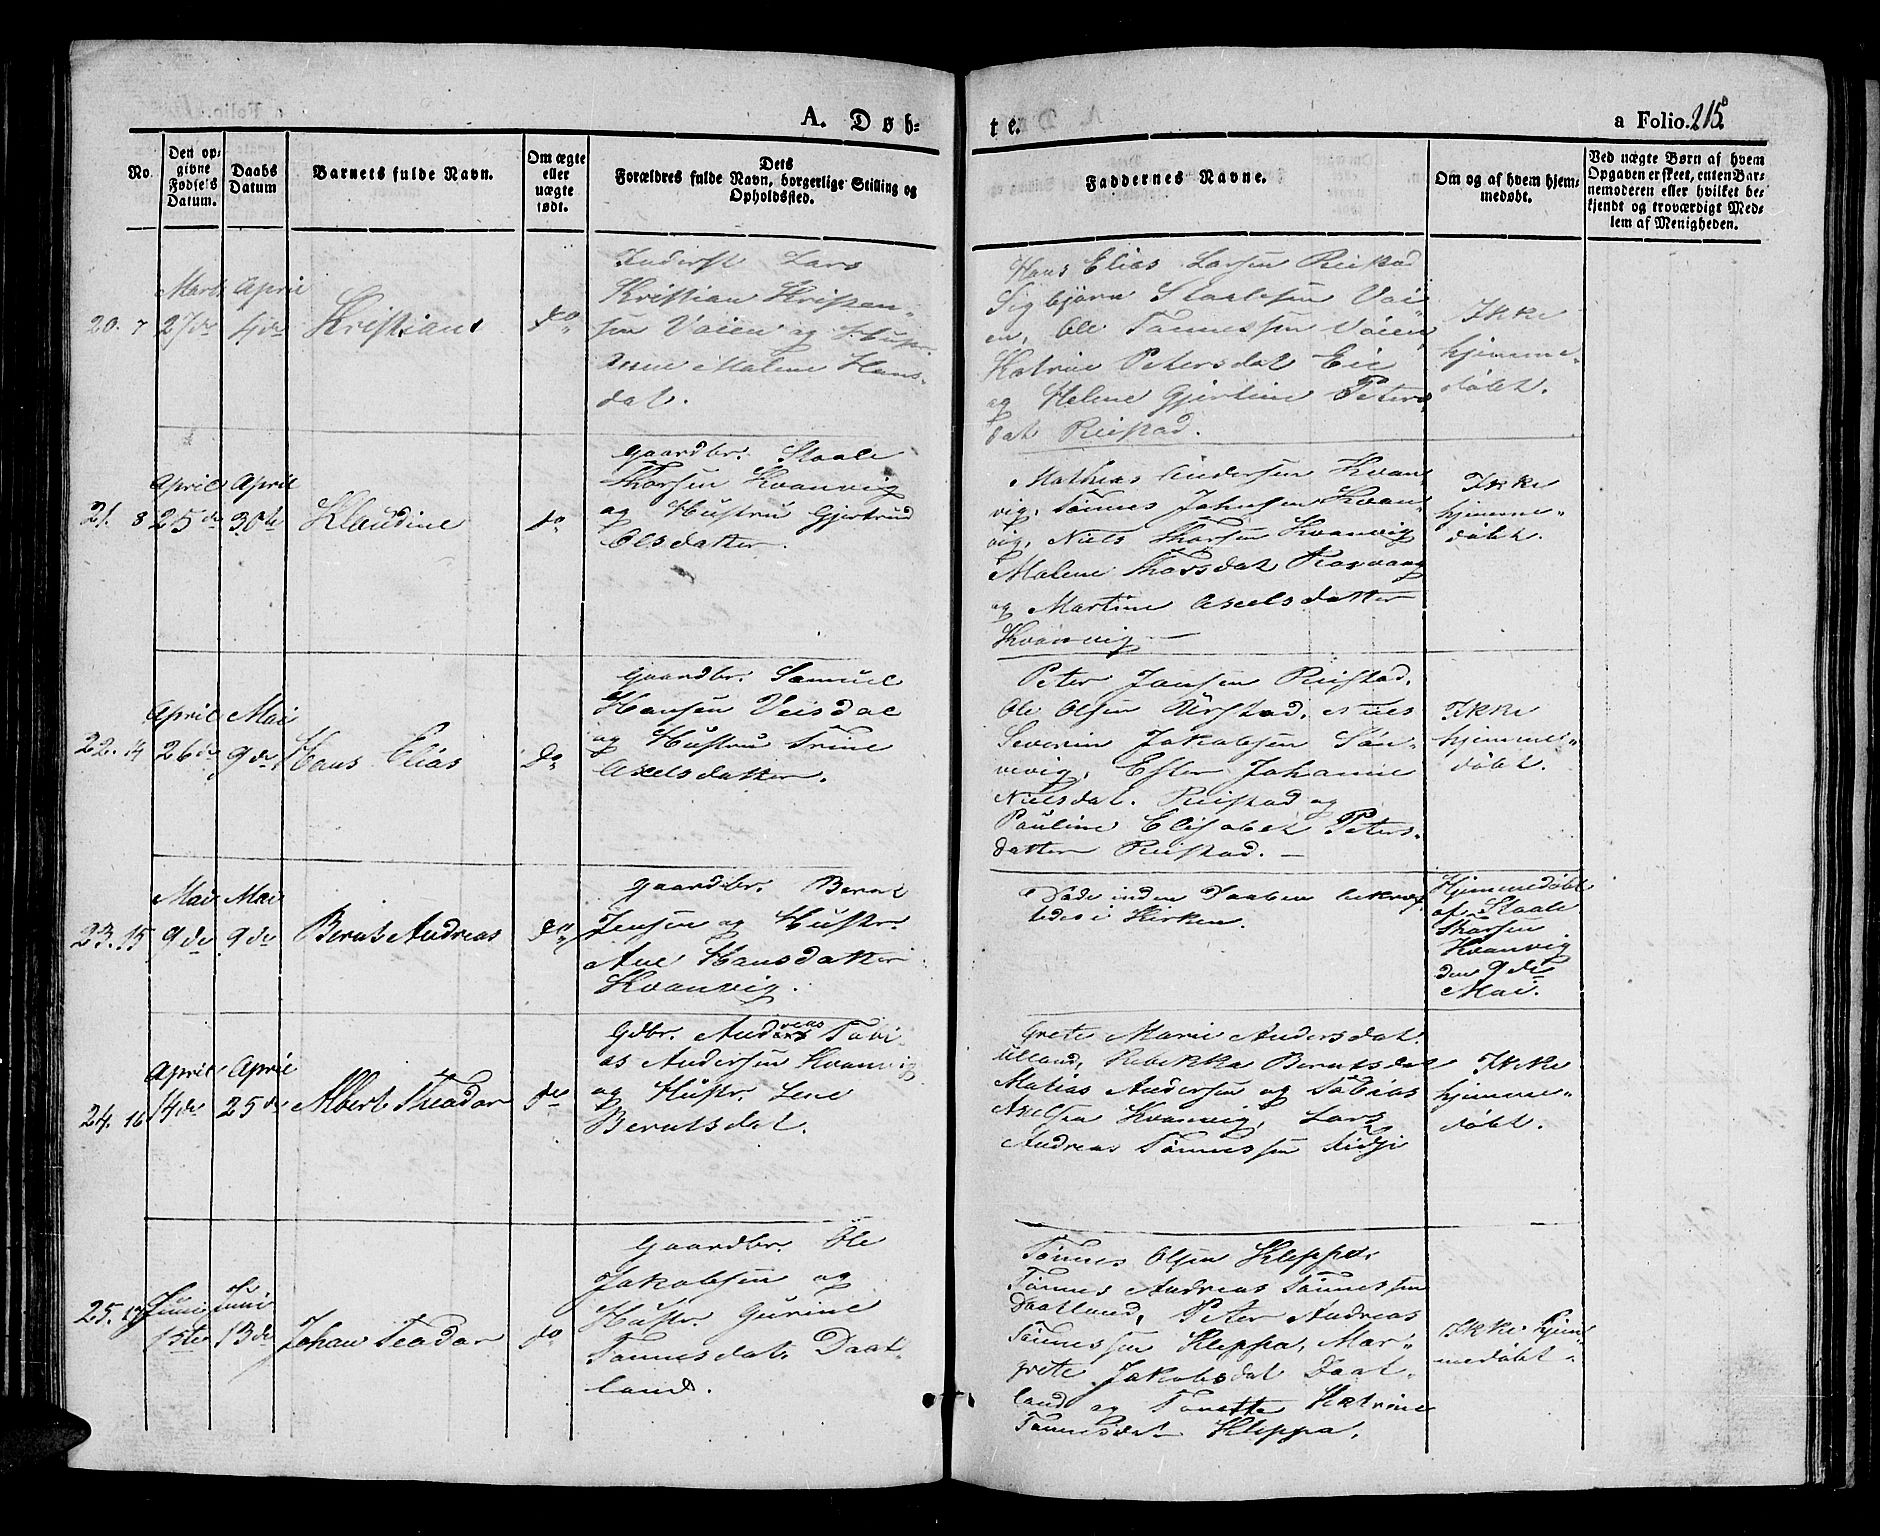 A. Døb=
te.
a Folio. 215.
No.
Den op=
givne
Fødsels
Datum.
Daabs
Datum
Barnets fulde Navn.
Om ægte
eller
uægte
født.
Dets
Forældres fulde Navn, borgerlige Stilling og
Opholdssted.
Faddernes Navne.
Om og af hvem hjem=
medøbt.
Ved uægte Børn af hvem
Opgaven er skeet, enten Bar=
nemoderen eller hvilket be=
kjendt og troværdigt Med=
lem af Menigheden.
20. 7
Marts
27de
April
4de
Kristiane
do
Inderst Lars
Kristian Kristen-
sen Vaien og Hustr.
Anne Malene Hans-
dat.
Hans Elias Larsen Reistad
Sigbjørn Staalesen Vai-
en, Ole Tønnessen Vaien,
Katrine Petersdat Eie
og Helene Gjertine Peters
dat Reistad.
Ikke
hjemme-
døbt.
21. 8
April
25de
April
30te
Klaudine
do
Gaardbr. Staale
Thorsen Kvanvig
og Hustru Gjertrud
Olsdatter.
Mathias Andersen Kvan
vig, Tønnes Johnsen Kvan-
vig, Niels Thorsen Kvanvig
Malene Thorsdat Kvanvig
og Martine Axelsdatter
Kvanvig —
Ikke
hjemme-
døbt.
22. 14
April
26de
Mai
9de
Hans Elias
do
Gaardbr. Samuel
Hansen Veisdal
og Hustru Trine
Axelsdatter.
Peter Jansen Reistad.
Ole Olsen Urstad, Niels
Severin Jakobsen Støn-
vevig, Ester Johanne
Nielsdat. Reistad og
Pauline Elisabet Peters-
datter Reistad. —
Ikke
hjemme-
døbt.
23. 15
Mai
9de
Mai
9de
Bernt Andreas
do
Gaardbr. Bernt
Jensen og Hustr.
Ane Hansdatter
Kvanvig.
Døde inden Daaben bekræf
tedes i Kirken.
Hjemmedøbt
af Staale
Thorsen
Kvanvig
den 9de
Mai.
24. 16
April
14de
April
25de
Albert Theodor
do
Gdbr. Andreas Tobi-
as Andersen Kvanvig
og Hustr. Lene
Berntsdat.
Grete Marie Andersdat.
Ulland, Rebekka Berntsdat
Matias Andersen og Tobias
Axelsen Kvanvig, Lars
Andreas Tønnessen
Ikke
hjemme-
døbt.
25. 17
Juni
1ste
Juni
13de
Johan Teodor
do
Gaardbr. Ole
Jakobsen og
Hustr. Gurine
Tønnesdat. Daat-
land.
Tønnes Olsen Kleppa,
Tønnes Andreas Tønnessen
Daatland, Peter Andreas
Tønnessen Kleppa, Mar-
grete Jakobsdat Daat-
land og Tonette Katrine
Tønnesdat Kleppa.
Ikke hjem
medøbt.